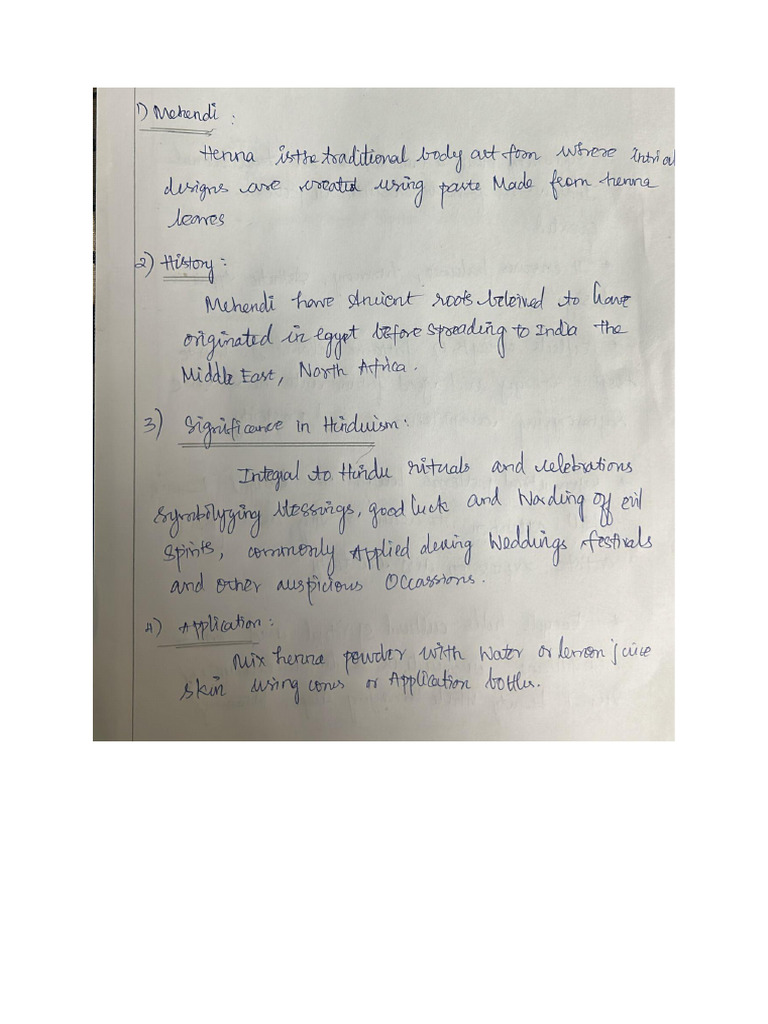 1) Mehendi :
Henna is the traditional body art form where
designs are created using paste Made from henna
leaves
2) History :
Mehendi have Ancient roots beleived to have
originated in egypt before spreading to India the
Middle East, North Africa.
3) Significance in Hinduism :
Integral to Hindu rituals and celebrations
Symbolyging blessings, good luck and Warding off evil
Spirits, commonly Applied during Weddings festivals
and other auspicious Occassions.
4) Application :
Mix henna powder with Water or lemon juice
skin using cones or Application bottles.